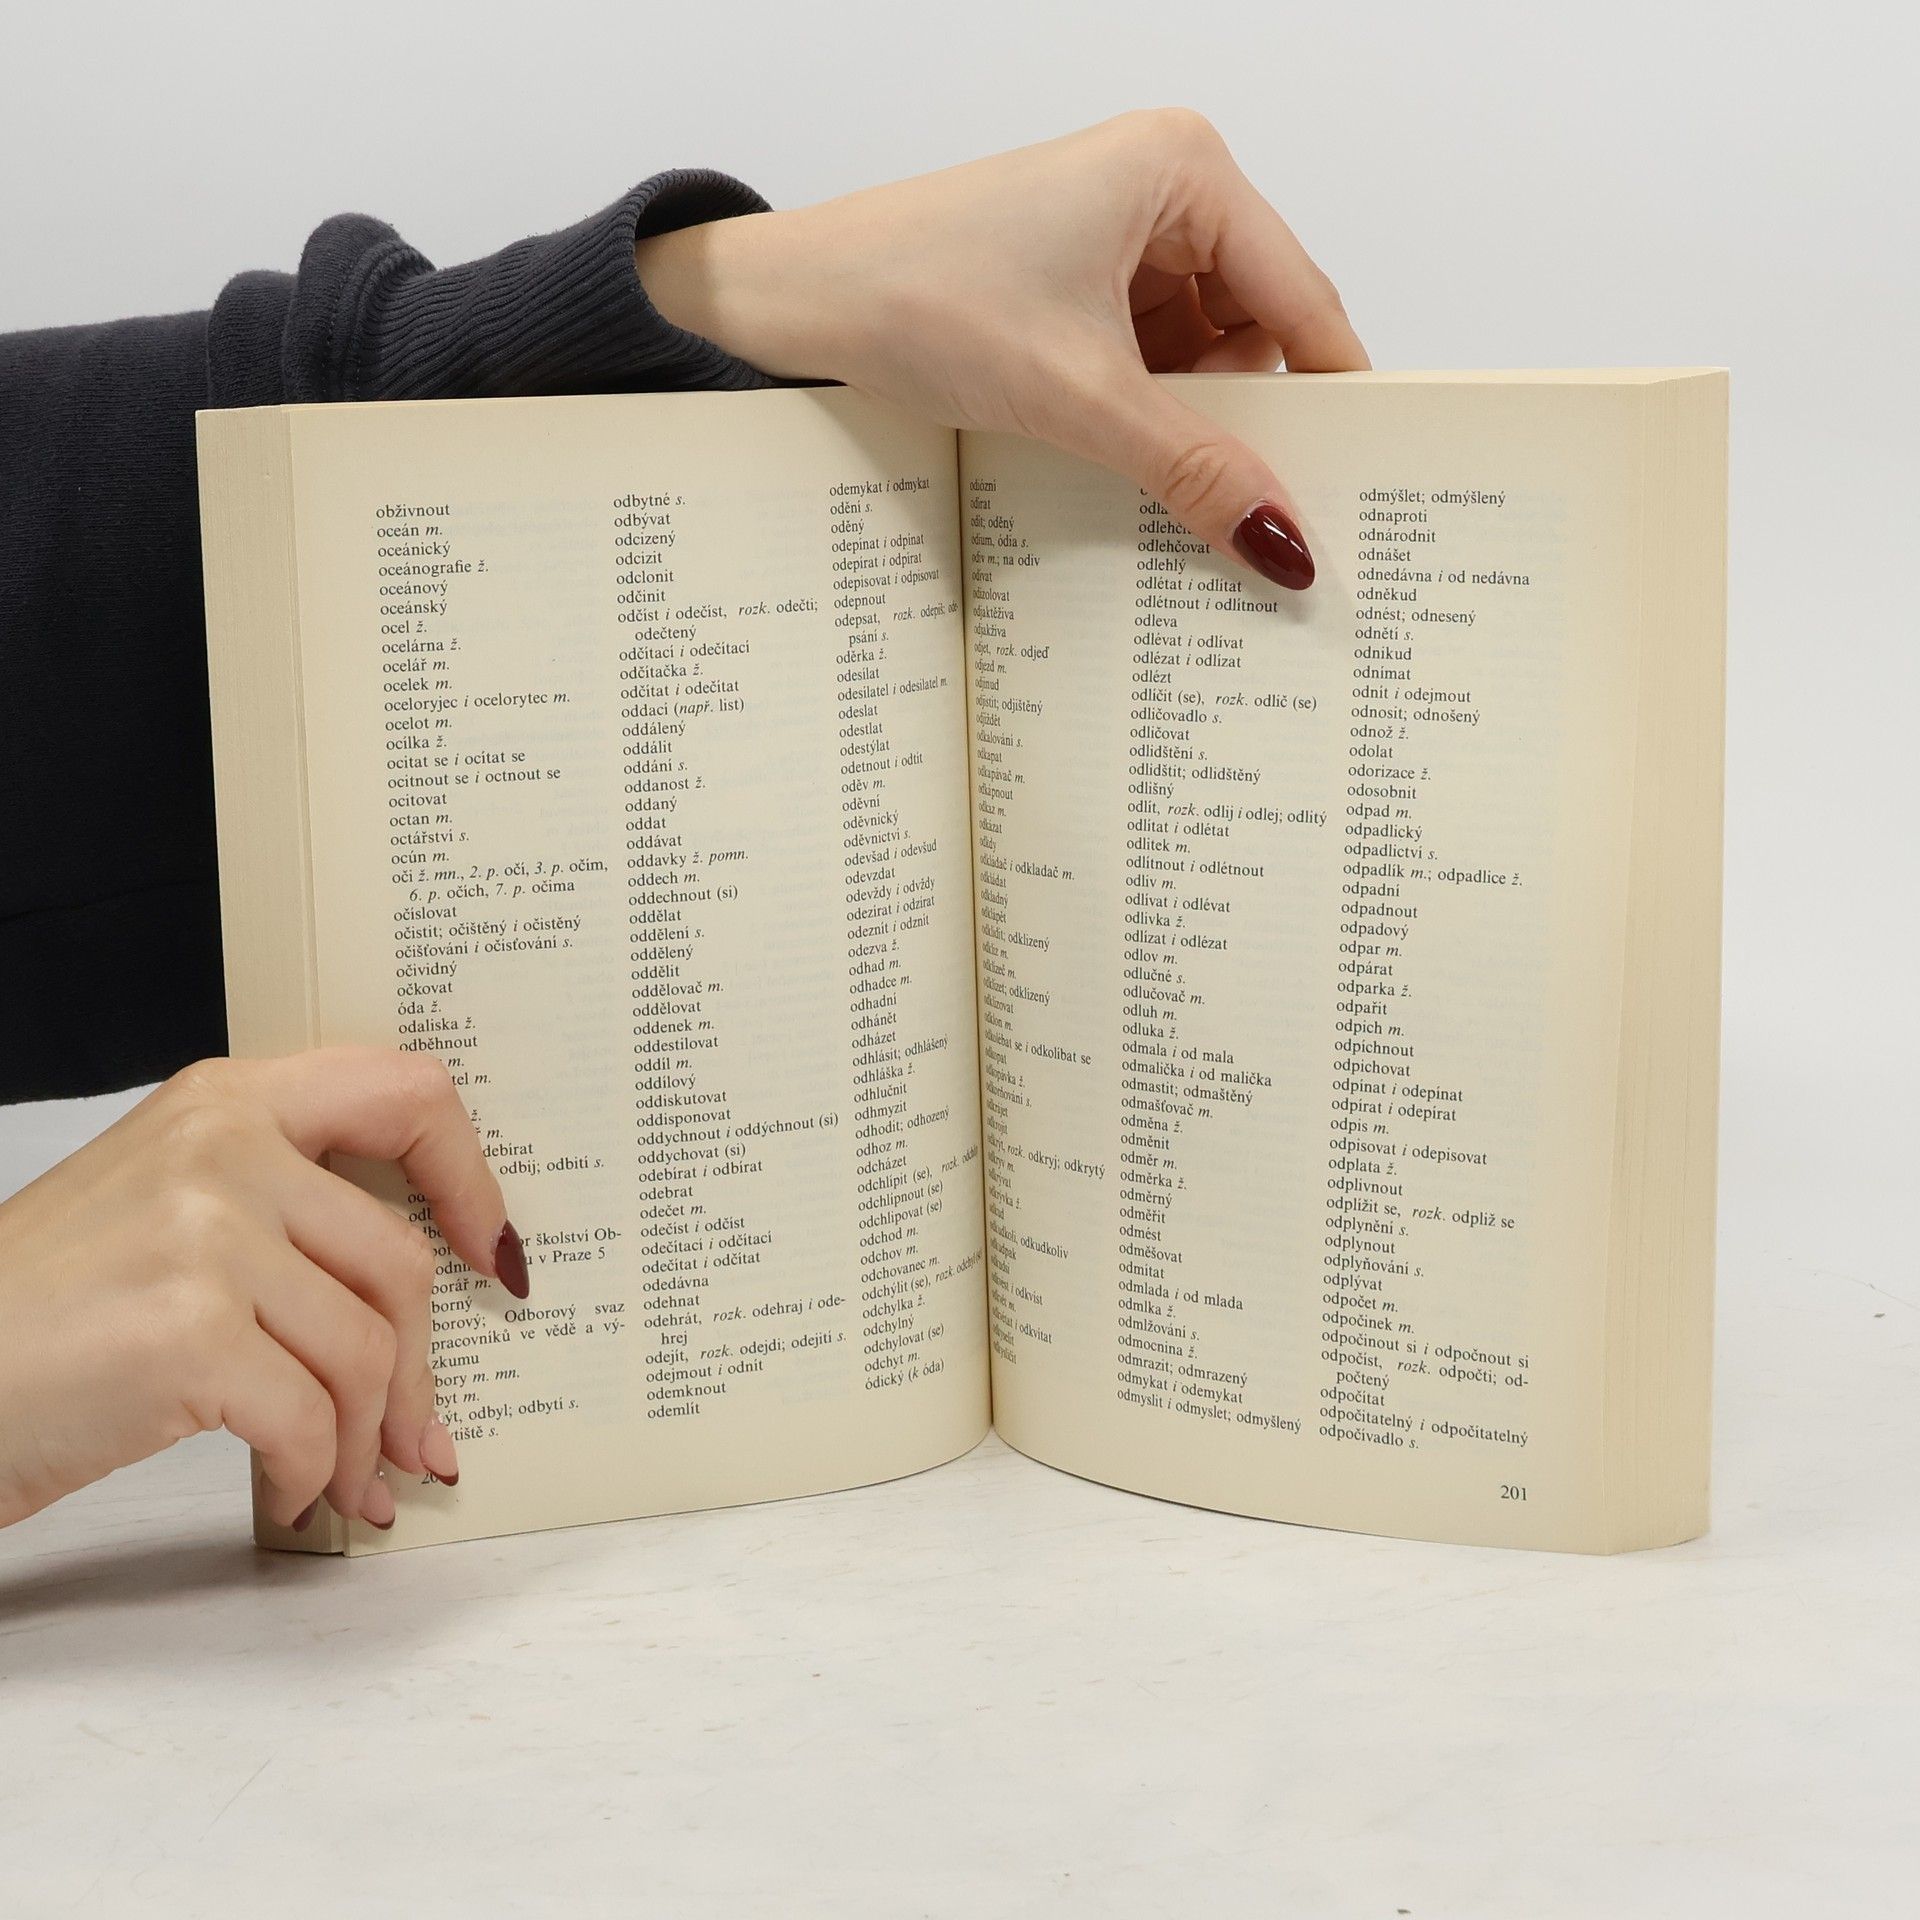 obživnout
oceán m.
oceánický
oceánografie ž.
oceánový
oceánský
ocel ž.
ocelárna ž.
ocelář m.
ocelek m.
oceloryjec i ocelorytec m.
ocelot m.
ocílka ž.
ocitat se i ocítat se
ocitnout se i octnout se
ocitovat
octan m.
octářství s.
ocún m.
oči ž. mn., 2. p. očí, 3. p. očím,
6. p. očích, 7. p. očima
očíslovat
očistit; očištěný i očistěný
očišťování i očisťování s.
očividný
očkovat
óda ž.
odaliska ž.
odběhnout
m.
m.
ž.
m.
odbij; odbití s.
školství Ob-
v Praze 5
m.
Odborový svaz
pracovníků ve vědě a vý-
zkumu
m. mn.
m.
odbyl; odbytí s.
s.
odbytné s.
odbývat
odcizený
odcizit
odclonit
odčinit
odčíst i odečíst, rozk. odečti;
odečtený
odčítací i odečítací
odčítačka ž.
odčítat i odečítat
oddací (např. list)
oddálený
oddálit
oddání s.
oddanost ž.
oddaný
oddat
oddávat
oddavky ž. pomn.
oddech m.
oddechnout (si)
oddělat
oddělení s.
oddělený
oddělit
oddělovač m.
oddělovat
oddenek m.
oddestilovat
oddíl m.
oddílový
oddiskutovat
oddisponovat
oddychnout i oddýchnout (si)
oddychovat (si)
odebírat i odbírat
odebrat
odečet m.
odečíst i odčíst
odečítací i odčítací
odečítat i odčítat
odedávna
odehnat
odehrát, rozk. odehraj i ode-
hrej
odejít, rozk. odejdi; odejití s.
odejmout i odnít
odemknout
odemlít
odemykat i odmykat
odění s.
oděný
odepínat i odpínat
odepírat i odpírat
odepisovat i odpisovat
odepnout
odepsat, rozk. odepiš; ode-
psání s.
oděrka ž.
odesílat
odesílatel i odesilatel m.
odeslat
odestlat
odestýlat
odetnout i odtít
oděv m.
oděvní
oděvnický
oděvnictví s.
odevšad i odevšud
odevzdat
odevždy i odvždy
odezírat i odzírat
odeznít i odznít
odezva ž.
odhad m.
odhadce m.
odhadní
odhánět
odházet
odhlásit; odhlášený
odhláška ž.
odhlučnit
odhmyzit
odhodit; odhozený
odhoz m.
odcházet
odchlípit (se), rozk.
odchlípnout (se)
odchlipovat (se)
odchod m.
odchov m.
odchovanec m.
odchýlit (se), rozk.
odchylka ž.
odchylný
odchylovat (se)
odchyt m.
ódický (k óda)
odiózní
odírat
odít; oděný
odium, ódia s.
odiv m.; na odiv
odívat
odizolovat
odjaktěživa
odjakživa
odjet, rozk. odjeď
odjezd m.
odjinud
odjistit; odjištěný
odjíždět
odkalování s.
odkapat
odkapávač m.
odkápnout
odkaz m.
odkázat
odkdy
odkládač i odkladač m.
odkládat
odkladný
odklápět
odklidit; odklizený
odkliz m.
odklízeč m.
odklízet; odklízený
odklizovat
odklon m.
odkolébat se i odkolíbat se
odkopat
odkopávka ž.
odkorňování s.
odkrájet
odkrojit
odkrýt, rozk. odkryj; odkrytý
odkryv m.
odkrývat
odkrývka ž.
odkud
odkudkoli, odkudkoliv
odkudpak
odkudsi
odkvést i odkvíst
odkvět m.
odkvétat i odkvítat
odlehčovat
odlehlý
odlétat i odlítat
odlétnout i odlítnout
odleva
odlévat i odlívat
odlézat i odlízat
odlézt
odlíčit (se), rozk. odlič (se)
odličovadlo s.
odličovat
odlidštění s.
odlidštit; odlidštěný
odlišný
odlít, rozk. odlij i odlej; odlitý
odlítat i odlétat
odlitek m.
odlítnout i odlétnout
odliv m.
odlívat i odlévat
odlivka ž.
odlízat i odlézat
odlov m.
odlučné s.
odlučovač m.
odluh m.
odluka ž.
odmala i od mala
odmalička i od malička
odmastit; odmaštěný
odmašťovač m.
odměna ž.
odměnit
odměr m.
odměrka ž.
odměrný
odměřit
odmést
odměšovat
odmítat
odmlada i od mlada
odmlka ž.
odmlžování s.
odmocnina ž.
odmrazit; odmrazený
odmykat i odemykat
odmyslit i odmyslet; odmyšlený
odmýšlet; odmýšlený
odnaproti
odnárodnit
odnášet
odnedávna i od nedávna
odněkud
odnést; odnesený
odnětí s.
odnikud
odnímat
odnít i odejmout
odnosit; odnošený
odnož ž.
odolat
odorizace ž.
odosobnit
odpad m.
odpadlický
odpadlictví s.
odpadlík m.; odpadlice ž.
odpadní
odpadnout
odpadový
odpar m.
odpárat
odparka ž.
odpařit
odpich m.
odpíchnout
odpichovat
odpínat i odepínat
odpírat i odepírat
odpis m.
odpisovat i odepisovat
odplata ž.
odplivnout
odplížit se, rozk. odpliž se
odplynění s.
odplynout
odplyňování s.
odplývat
odpočet m.
odpočinek m.
odpočinout si i odpočnout si
odpočíst, rozk. odpočti; od-
počtený
odpočítat
odpočitatelný i odpočítatelný
odpočívadlo s.
201